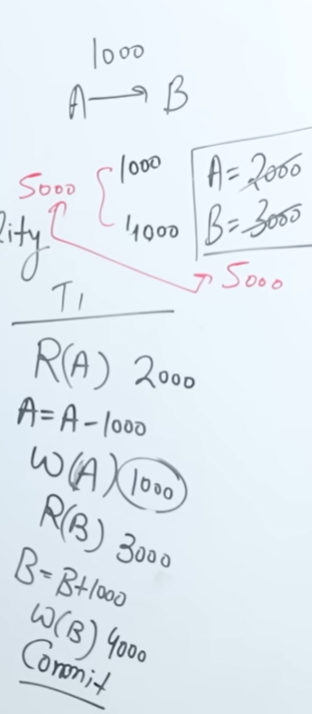 1000
A → B
5000 { 1000
4000
A = 2000
B = 3000
5000
T1
R(A) 2000
A = A - 1000
W(A) 1000
R(B) 3000
B = B + 1000
W(B) 4000
Commit